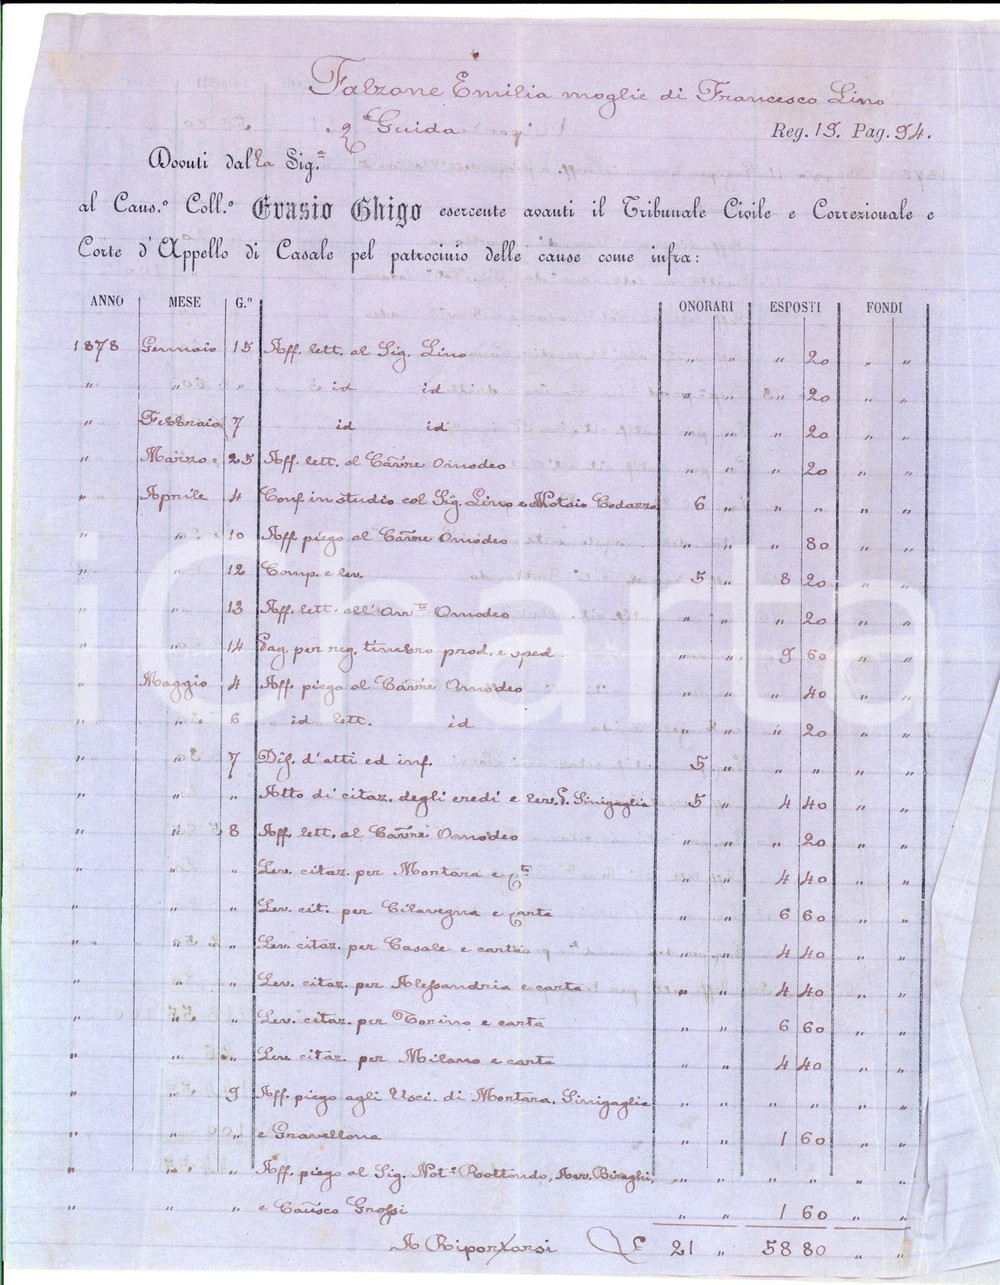 Falzone Emilia moglie di Francesco Lino
Guida
Reg. 15. Pag. 94.
Dovuti dalla Sig.ª
al Caus.º Coll.º Evasio Ghigo esercente avanti il Tribunale Civile e Correzionale e
Corte d'Appello di Casale pel patrocinio delle cause come infra:
ANNO MESE G.º ONORARI ESPOTI FONDI
1878 Gennaio 15 Aff. lett. al Sig. Lino " " " 20 " "
" " " id id " " " 20 " "
" Febbraio 7 id id " " " 20 " "
" Marzo 25 Aff. lett. al Omodeo " " " 20 " "
" Aprile 4 Conf. in studio col Sig. Lino e Notaio Codazza 6 " " " " "
" " 10 Aff. piego al Omodeo " " " 80 " "
" " 12 Comp. e lev. 5 " 8 20 " "
" " 13 Aff. lett. all' Omodeo " " " 20 " "
" " 14 Pag. per reg. timbro prod. e sped. " " 9 60 " "
" Maggio 4 Aff. piego al Omodeo " " " 40 " "
" " 6 id lett. id " " " 20 " "
" " 7 d'atti ed inf. 5 " " " " "
" " " Atto di citaz. degli eredi e lev. p. Sinigaglia 5 " 4 40 " "
" " 8 Aff. lett. al Omodeo " " " 20 " "
" " " Lev. citaz. per Mortara e " " 4 40 " "
" " " Lev. cit. per Cilavegna e carta " " 6 60 " "
" " " Lev. citaz. per Casale e carta " " 4 40 " "
" " " Lev. citaz. per Alessandria e carta " " 4 40 " "
" " " Lev. citaz. per Torino e carta " " 6 60 " "
" " " Lev. citaz. per Milano e carta " " 4 40 " "
" " 9 Aff. piego agli Usci. di Mortara, Sinigaglia " " " " " "
" " " e Gravellona " " 1 60 " "
" " " Aff. piego al Sig. Not.º Rottondo, Avv. Biraghi, " " " " " "
" " " e Grossi " " 1 60 " "
A Riportarsi £ 21 " 58 80 " "
iCharta